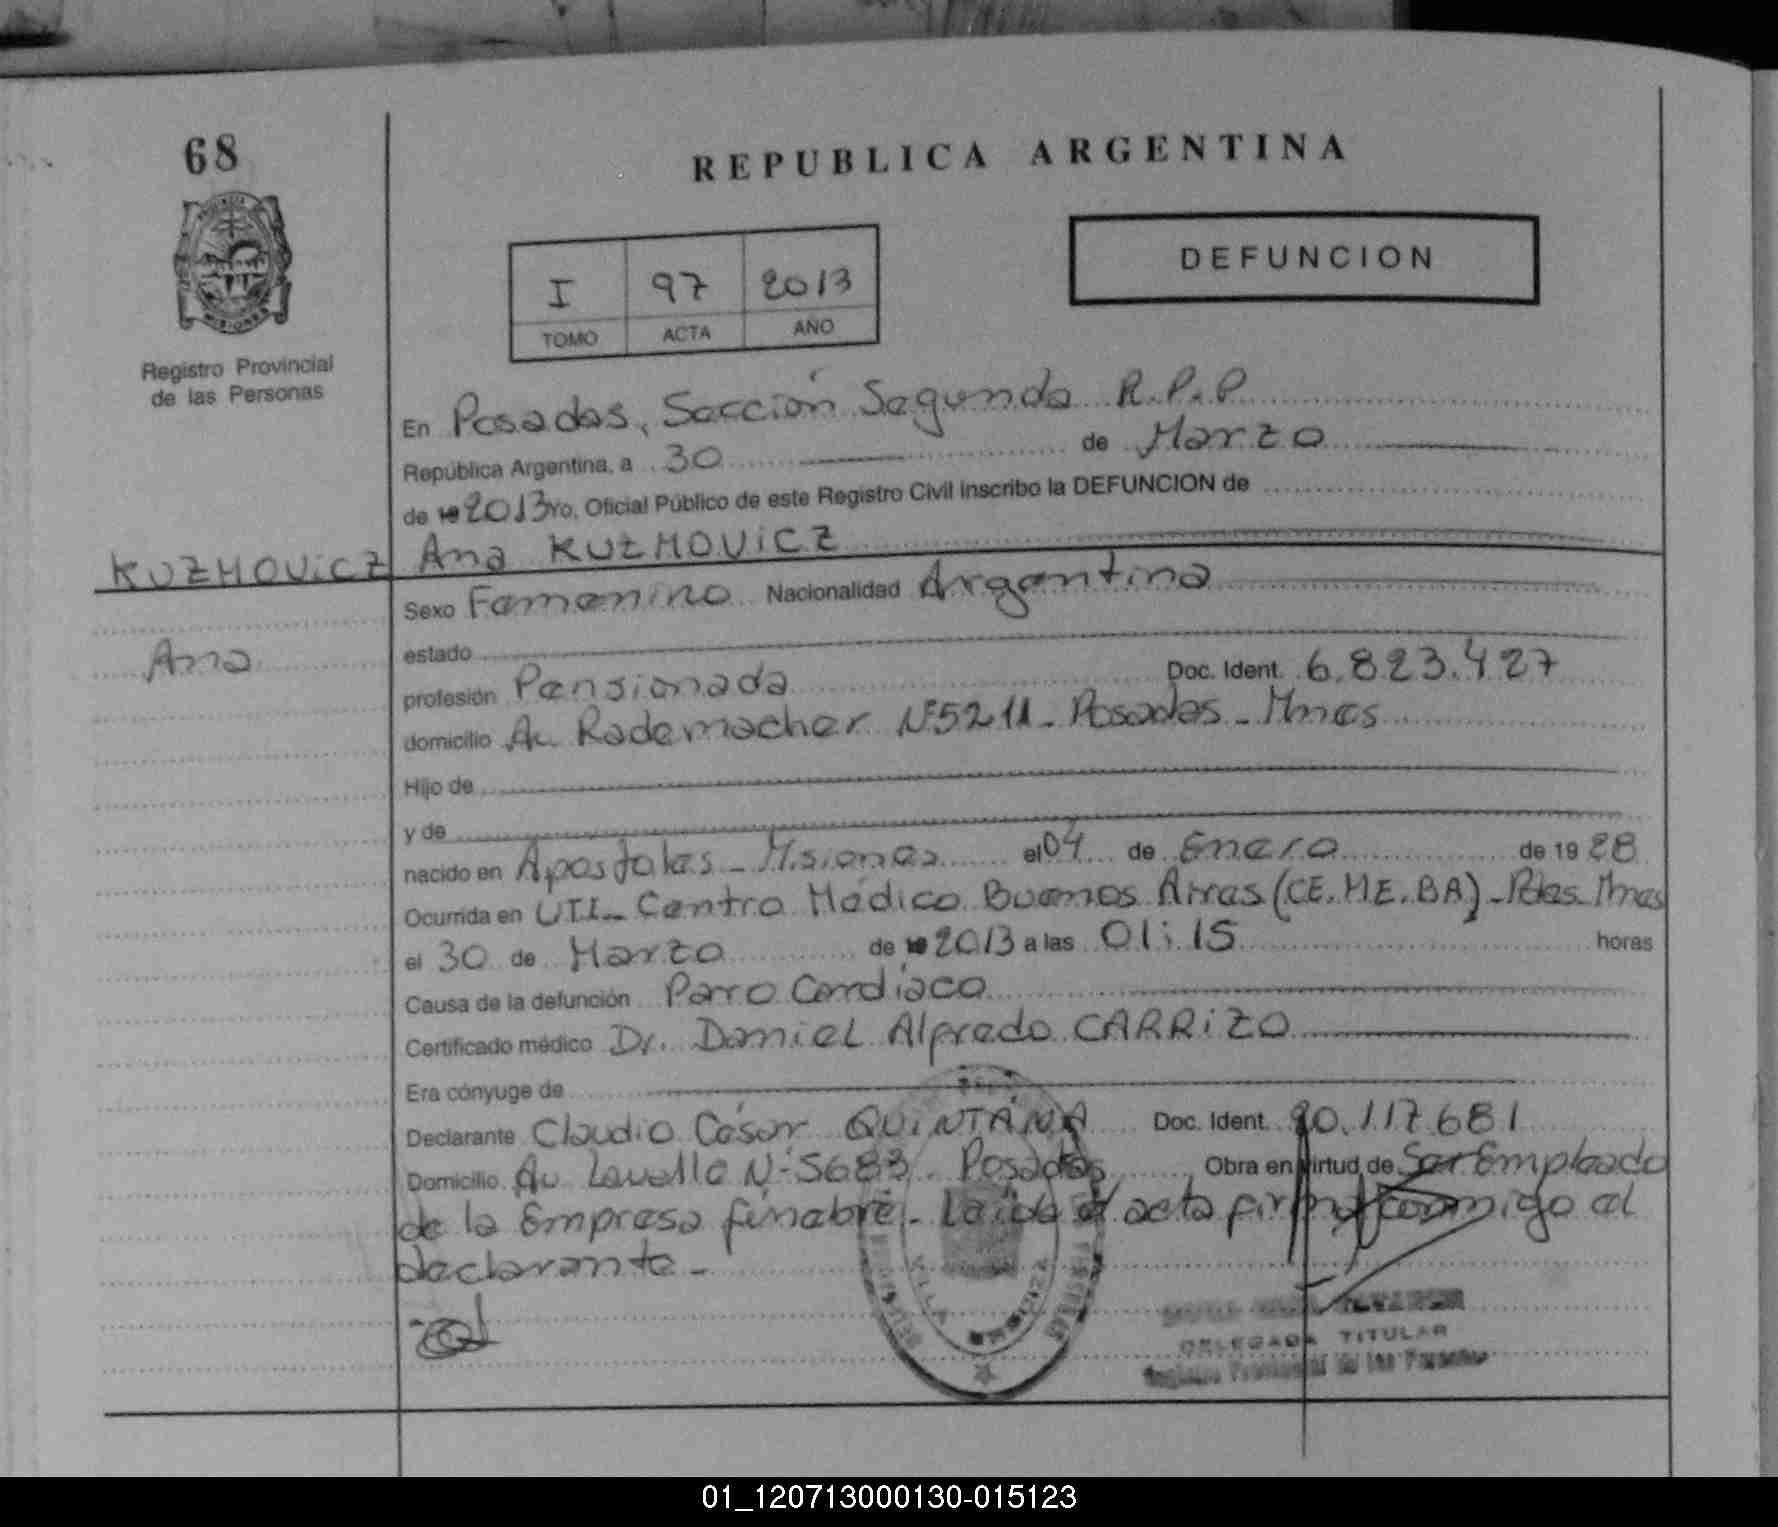 68
REPUBLICA ARGENTINA
I 97 2013
TOMO ACTA AÑO
DEFUNCION
Registro Provincial
de las Personas
En Posadas, Sección Segunda R.P.P
República Argentina, a 30 de Marzo
de 19 2013 Yo, Oficial Público de este Registro Civil inscribo la DEFUNCION de
KUZMOVICZ Ana KUZMOVICZ
Sexo Femenino Nacionalidad Argentina
Ana
estado
profesión Pensionada Doc. Ident. 6.823.427
domicilio Av. Rademacher Nº 5211 - Posadas - Mnes
Hijo de
y de
nacido en Apostoles - Misiones el 04 de Enero de 19 28
Ocurrida en UTI - Centro Médico Buenos Aires (CE.ME.BA) - Pdas Mnes
el 30 de Marzo de 19 2013 a las 01:15 horas
Causa de la defunción Parro Cardiaco
Certificado médico Dr. Daniel Alfredo CARRIZO
Era cónyuge de
Declarante Claudio César QUINTANA Doc. Ident. 20.117.681
Domicilio Av Lavalle Nº 5683 Posadas Obra en virtud de Ser Empleado
de la Empresa fúnebre - Leida el acta firma conmigo el
declarante -
DELEGADA TITULAR
Registro Provincial de las Personas
01_120713000130-015123